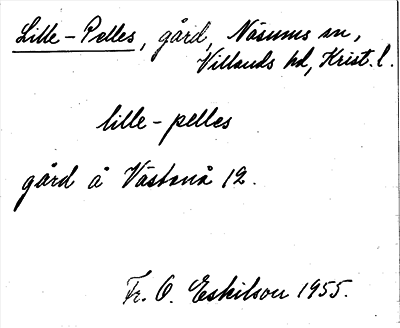 Lille-Pelles, gård, Näsums sn,
Villands hd, Krist. l.
lille-pelles
gård å Västanå 12.
Fr. O. Eskilson 1955.